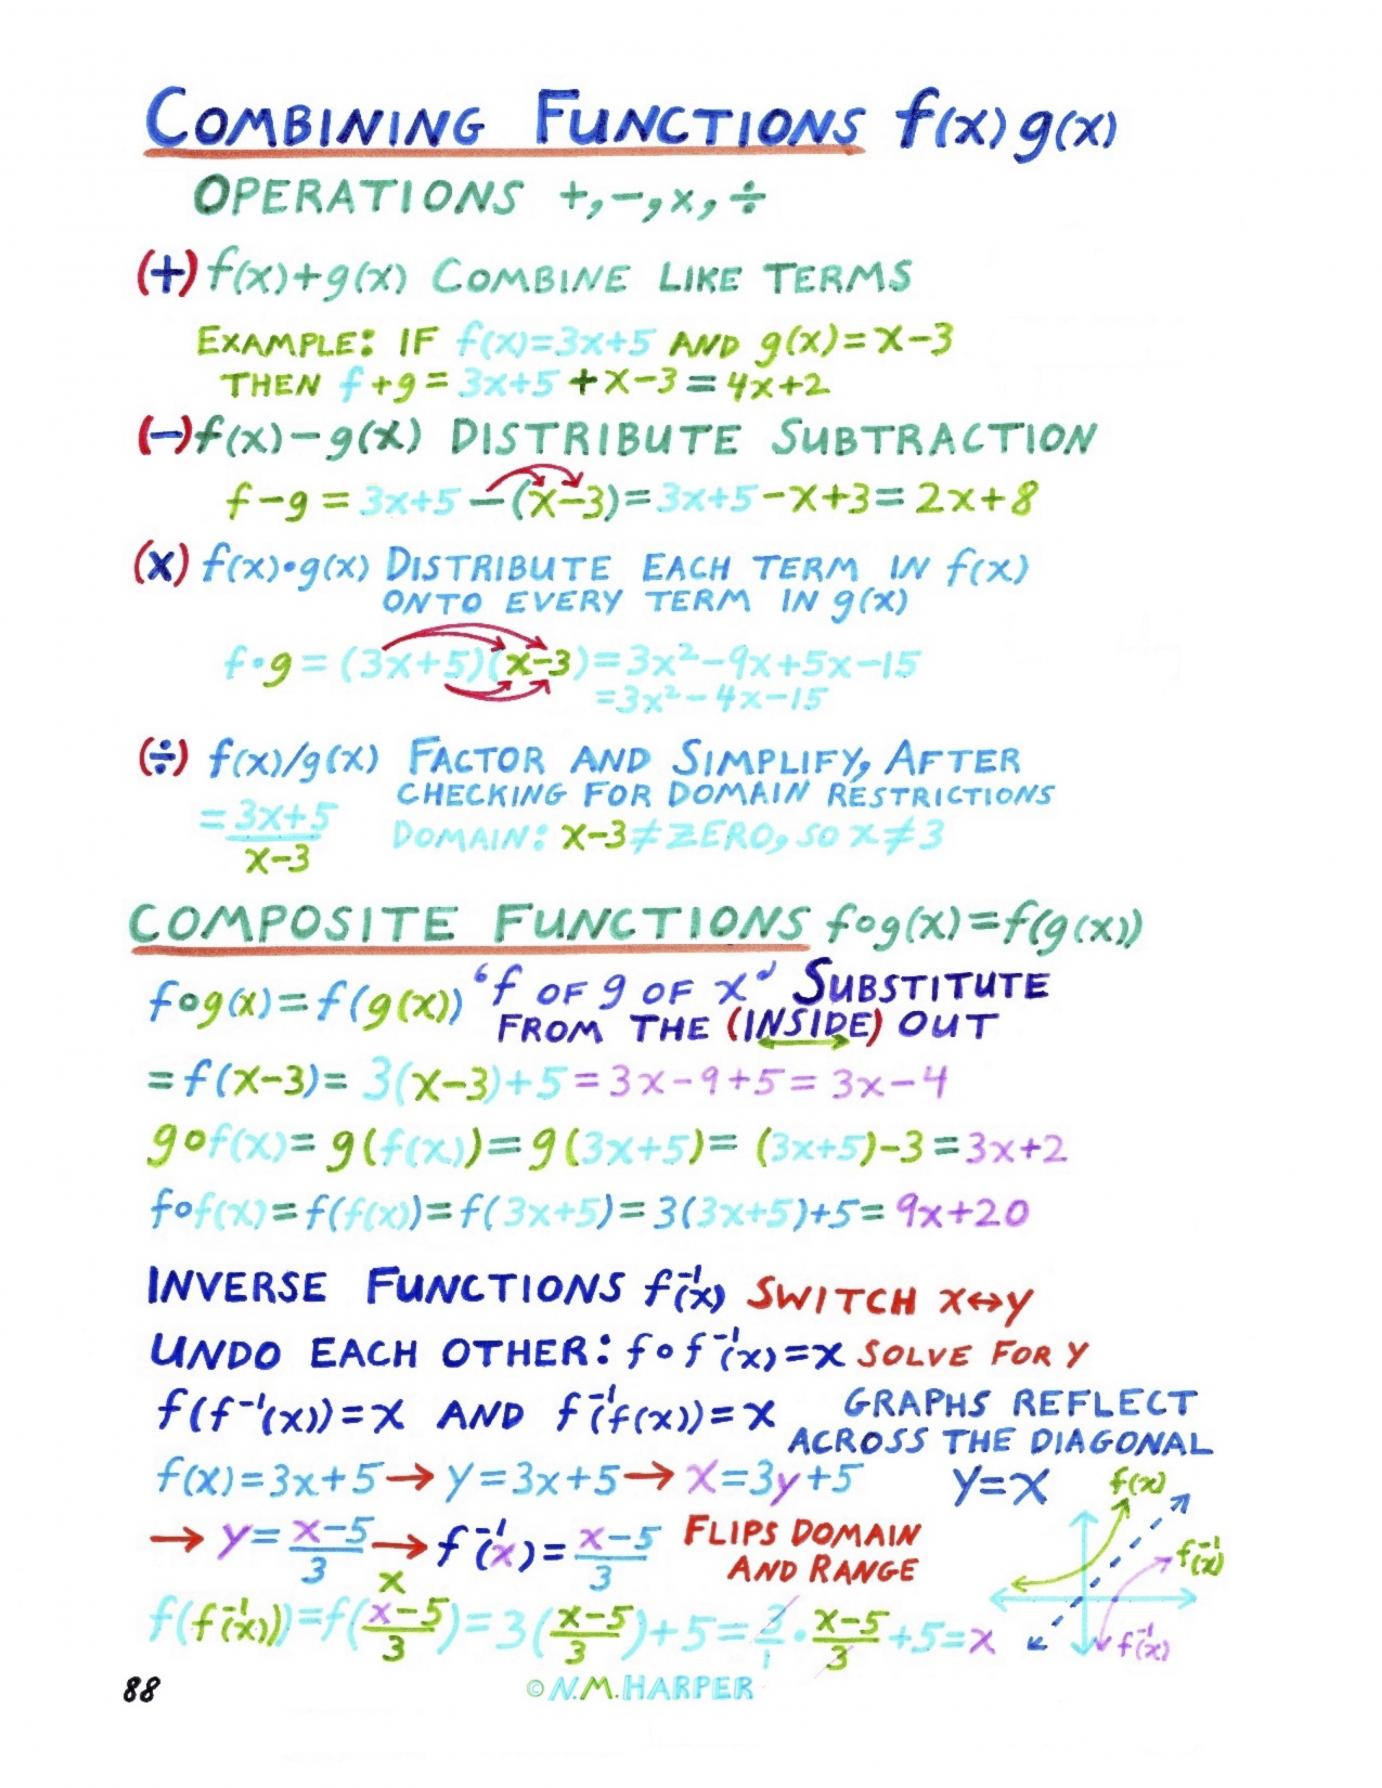 COMBINING FUNCTIONS f(x) g(x)
OPERATIONS +, −, x, ÷
(+) f(x)+g(x) COMBINE LIKE TERMS
EXAMPLE: IF f(x)=3x+5 AND g(x)=x−3
THEN f+g = 3x+5 +x−3 = 4x+2
(−) f(x)−g(x) DISTRIBUTE SUBTRACTION
f−g = 3x+5 −(x−3)=3x+5−x+3=2x+8
(x) f(x)•g(x) DISTRIBUTE EACH TERM IN f(x)
ONTO EVERY TERM IN g(x)
f•g = (3x+5)(x−3)=3x²−9x+5x−15
=3x²−4x−15
(÷) f(x)/g(x) FACTOR AND SIMPLIFY, AFTER
CHECKING FOR DOMAIN RESTRICTIONS
= 3x+5 / x−3 DOMAIN: x−3≠ZERO, SO x≠3
COMPOSITE FUNCTIONS f∘g(x)=f(g(x))
f∘g(x)=f(g(x)) 'f OF g OF x' SUBSTITUTE
FROM THE (INSIDE) OUT
=f(x−3)= 3(x−3)+5=3x−9+5=3x−4
g∘f(x)=g(f(x))=g(3x+5)= (3x+5)−3=3x+2
f∘f(x)=f(f(x))=f(3x+5)=3(3x+5)+5=9x+20
INVERSE FUNCTIONS f⁻¹(x) SWITCH x↔y
UNDO EACH OTHER: f∘f⁻¹(x)=x SOLVE FOR y
f(f⁻¹(x))=x AND f⁻¹(f(x))=x GRAPHS REFLECT
ACROSS THE DIAGONAL
f(x)=3x+5→y=3x+5→x=3y+5 y=x f(x)
→ y= x−5 / 3 → f⁻¹(x)= x−5 / 3 FLIPS DOMAIN
AND RANGE
f⁻¹(x)
x
f(f⁻¹(x))=f(x−5 / 3)=3(x−5 / 3)+5=3/1 • x−5 / 3 +5=x
f⁻¹(x)
88 © N.M.HARPER